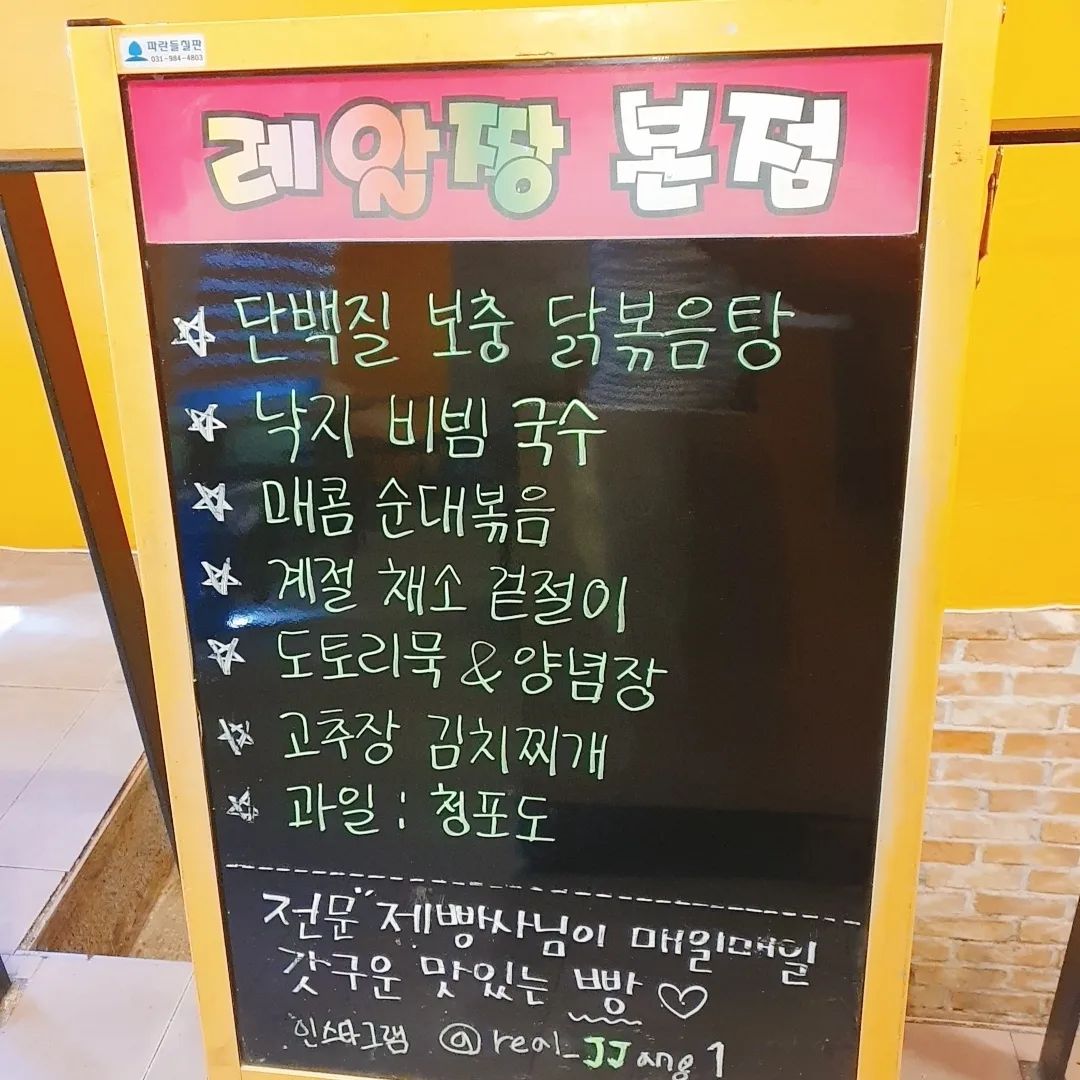 파란들칠판
031-984-4803
레알짱 본점
☆ 단백질 보충 닭볶음탕
☆ 낙지 비빔 국수
☆ 매콤 순대볶음
☆ 계절 채소 겉절이
☆ 도토리묵 & 양념장
☆ 고추장 김치찌개
☆ 과일 : 청포도
전문 "제빵사님이 매일매일
갓구운 맛있는 빵 ♡
인스타그램 @real_JJang1